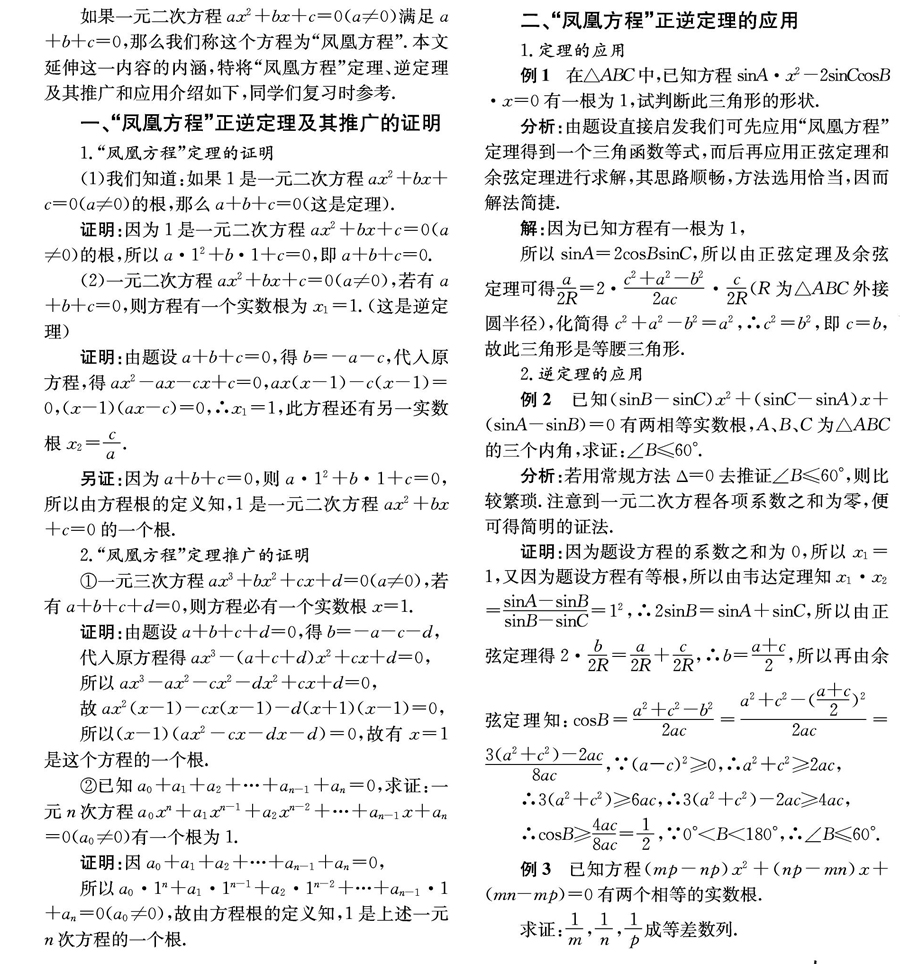 如果一元二次方程 ax²+bx+c=0(a≠0)满足 a
+b+c=0,那么我们称这个方程为“凤凰方程”. 本文
延伸这一内容的内涵,特将“凤凰方程”定理、逆定理
及其推广和应用介绍如下,同学们复习时参考.
一、“凤凰方程”正逆定理及其推广的证明
1. “凤凰方程”定理的证明
(1)我们知道:如果 1 是一元二次方程 ax²+bx+
c=0(a≠0)的根,那么 a+b+c=0(这是定理).
证明:因为 1 是一元二次方程 ax²+bx+c=0(a
≠0)的根,所以 a·1²+b·1+c=0,即 a+b+c=0.
(2)一元二次方程 ax²+bx+c=0(a≠0),若有 a
+b+c=0,则方程有一个实数根为 x₁=1. (这是逆定
理)
证明:由题设 a+b+c=0,得 b=-a-c,代入原
方程,得 ax²-ax-cx+c=0,ax(x-1)-c(x-1)=
0,(x-1)(ax-c)=0,∴x₁=1,此方程还有另一实数
根 x₂=c/a.
另证:因为 a+b+c=0,则 a·1²+b·1+c=0,
所以由方程根的定义知,1 是一元二次方程 ax²+bx
+c=0 的一个根.
2. “凤凰方程”定理推广的证明
①一元三次方程 ax³+bx²+cx+d=0(a≠0),若
有 a+b+c+d=0,则方程必有一个实数根 x=1.
证明:由题设 a+b+c+d=0,得 b=-a-c-d,
代入原方程得 ax³-(a+c+d)x²+cx+d=0,
所以 ax³-ax²-cx²-dx²+cx+d=0,
故 ax²(x-1)-cx(x-1)-d(x+1)(x-1)=0,
所以(x-1)(ax²-cx-dx-d)=0,故有 x=1
是这个方程的一个根.
②已知 a₀+a₁+a₂+…+aₙ₋₁+aₙ=0,求证:一
元 n 次方程 a₀xⁿ+a₁xⁿ⁻¹+a₂xⁿ⁻²+…+aₙ₋₁x+aₙ
=0(a₀≠0)有一个根为 1.
证明:因 a₀+a₁+a₂+…+aₙ₋₁+aₙ=0,
所以 a₀·1ⁿ+a₁·1ⁿ⁻¹+a₂·1ⁿ⁻²+…+aₙ₋₁·1
+aₙ=0(a₀≠0),故由方程根的定义知,1 是上述一元
n 次方程的一个根.
二、“凤凰方程”正逆定理的应用
1. 定理的应用
例 1 在△ABC 中,已知方程 sinA·x²-2sinCcosB
·x=0 有一根为 1,试判断此三角形的形状.
分析:由题设直接启发我们可先应用“凤凰方程”
定理得到一个三角函数等式,而后再应用正弦定理和
余弦定理进行求解,其思路顺畅,方法选用恰当,因而
解法简捷.
解:因为已知方程有一根为 1,
所以 sinA=2cosBsinC,所以由正弦定理及余弦
定理可得a/2R=2·(c²+a²-b²)/2ac·c/2R(R 为△ABC 外接
圆半径),化简得 c²+a²-b²=a²,∴c²=b²,即 c=b,
故此三角形是等腰三角形.
2. 逆定理的应用
例 2 已知(sinB-sinC)x²+(sinC-sinA)x+
(sinA-sinB)=0 有两相等实数根,A、B、C 为△ABC
的三个内角,求证:∠B≤60°.
分析:若用常规方法 Δ=0 去推证∠B≤60°,则比
较繁琐. 注意到一元二次方程各项系数之和为零,便
可得简明的证法.
证明:因为题设方程的系数之和为 0,所以 x₁=
1,又因为题设方程有等根,所以由韦达定理知 x₁·x₂
=(sinA-sinB)/(sinB-sinC)=1²,∴2sinB=sinA+sinC,所以由正
弦定理得 2·b/2R=a/2R+c/2R,∴b=(a+c)/2,所以再由余
弦定理知:cosB=(a²+c²-b²)/2ac=(a²+c²-((a+c)/2)²)/2ac=
(3(a²+c²)-2ac)/8ac,∵(a-c)²≥0,∴a²+c²≥2ac,
∴3(a²+c²)≥6ac,∴3(a²+c²)-2ac≥4ac,
∴cosB≥4ac/8ac=1/2,∵0°<B<180°,∴∠B≤60°.
例 3 已知方程(mp-np)x²+(np-mn)x+
(mn-mp)=0 有两个相等的实数根.
求证:1/m,1/n,1/p成等差数列.